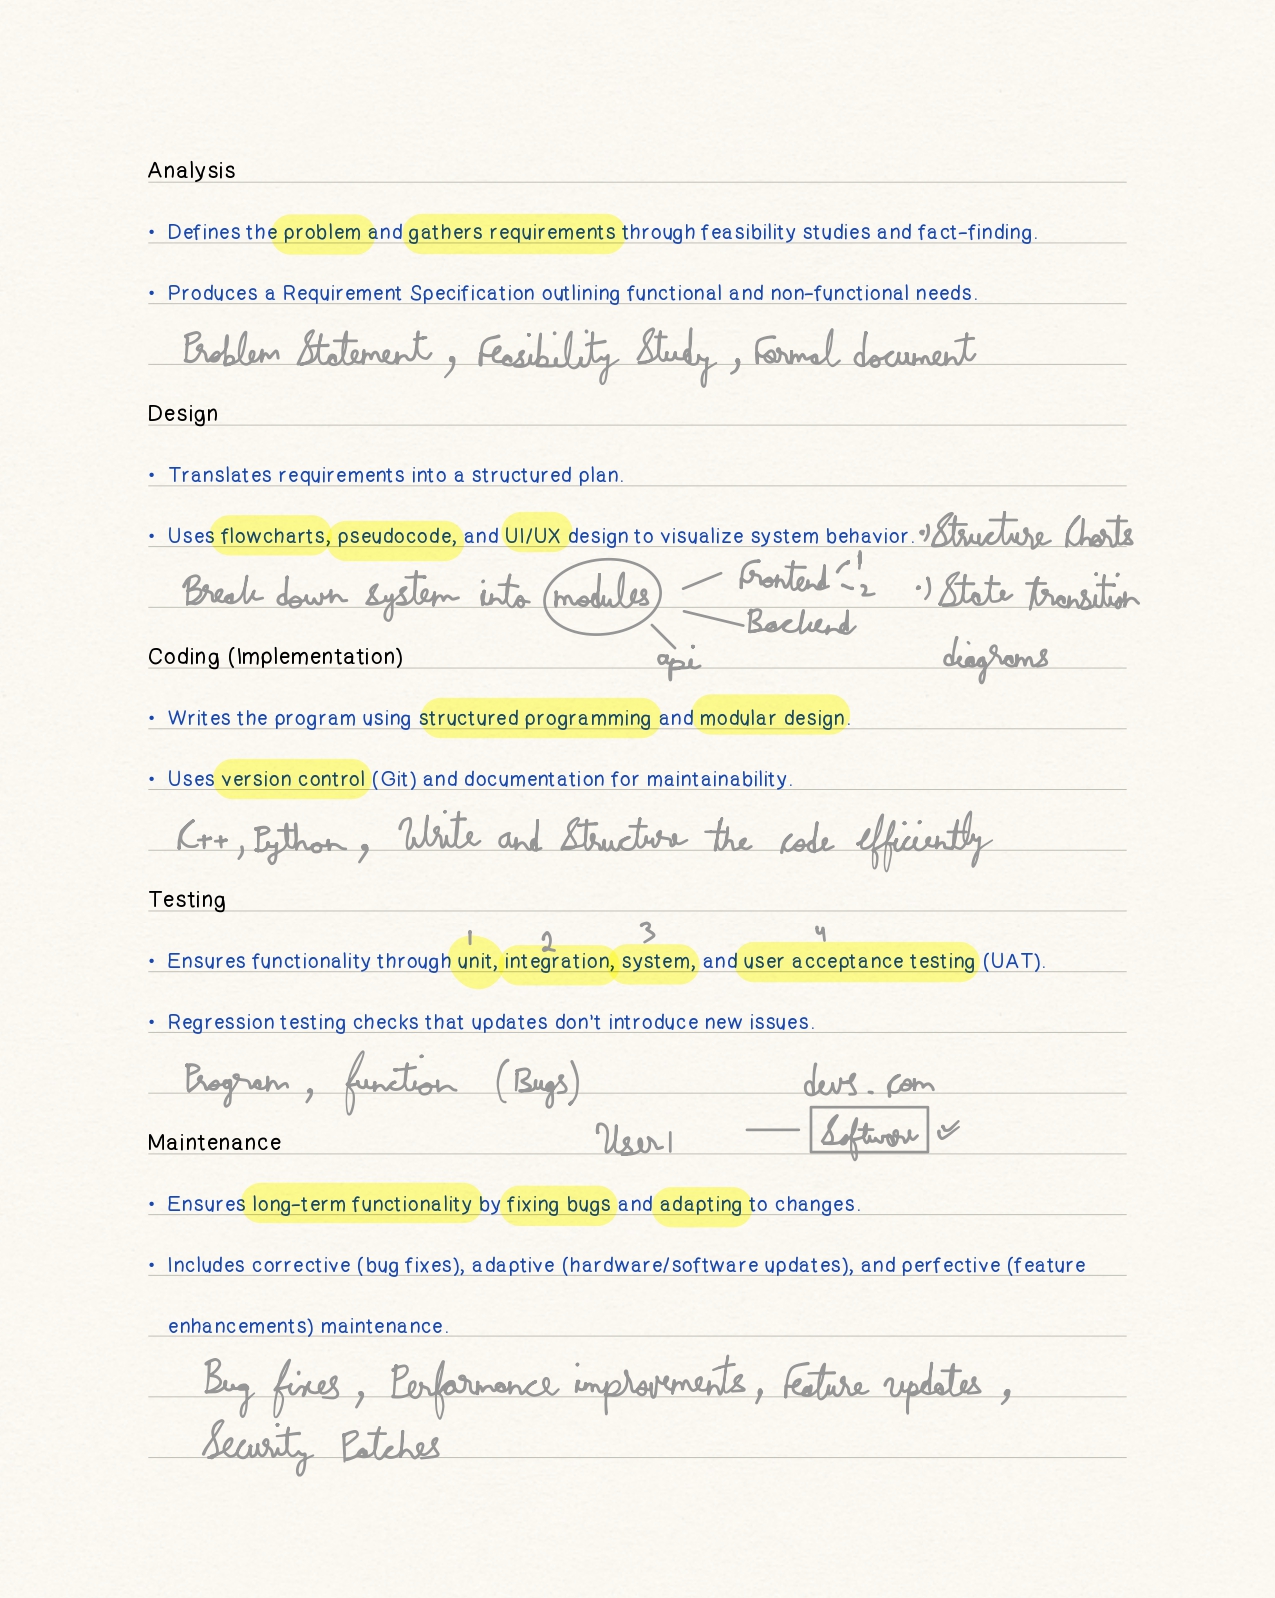 Analysis
• Defines the problem and gathers requirements through feasibility studies and fact-finding.
• Produces a Requirement Specification outlining functional and non-functional needs.
Problem Statement, Feasibility Study, Formal document
Design
• Translates requirements into a structured plan.
• Uses flowcharts, pseudocode, and UI/UX design to visualize system behavior. •) Structure Charts
Break down system into modules Frontend 1 2 •) State transition
Backend
Coding (Implementation) api diagrams
• Writes the program using structured programming and modular design.
• Uses version control (Git) and documentation for maintainability.
C++, Python, Write and Structure the code efficiently
Testing
1 2 3 4
• Ensures functionality through unit, integration, system, and user acceptance testing (UAT).
• Regression testing checks that updates don't introduce new issues.
Program, function (Bugs) devs.com
Maintenance User1 — Software
• Ensures long-term functionality by fixing bugs and adapting to changes.
• Includes corrective (bug fixes), adaptive (hardware/software updates), and perfective (feature
enhancements) maintenance.
Bug fixes, Performance improvements, Feature updates,
Security Patches